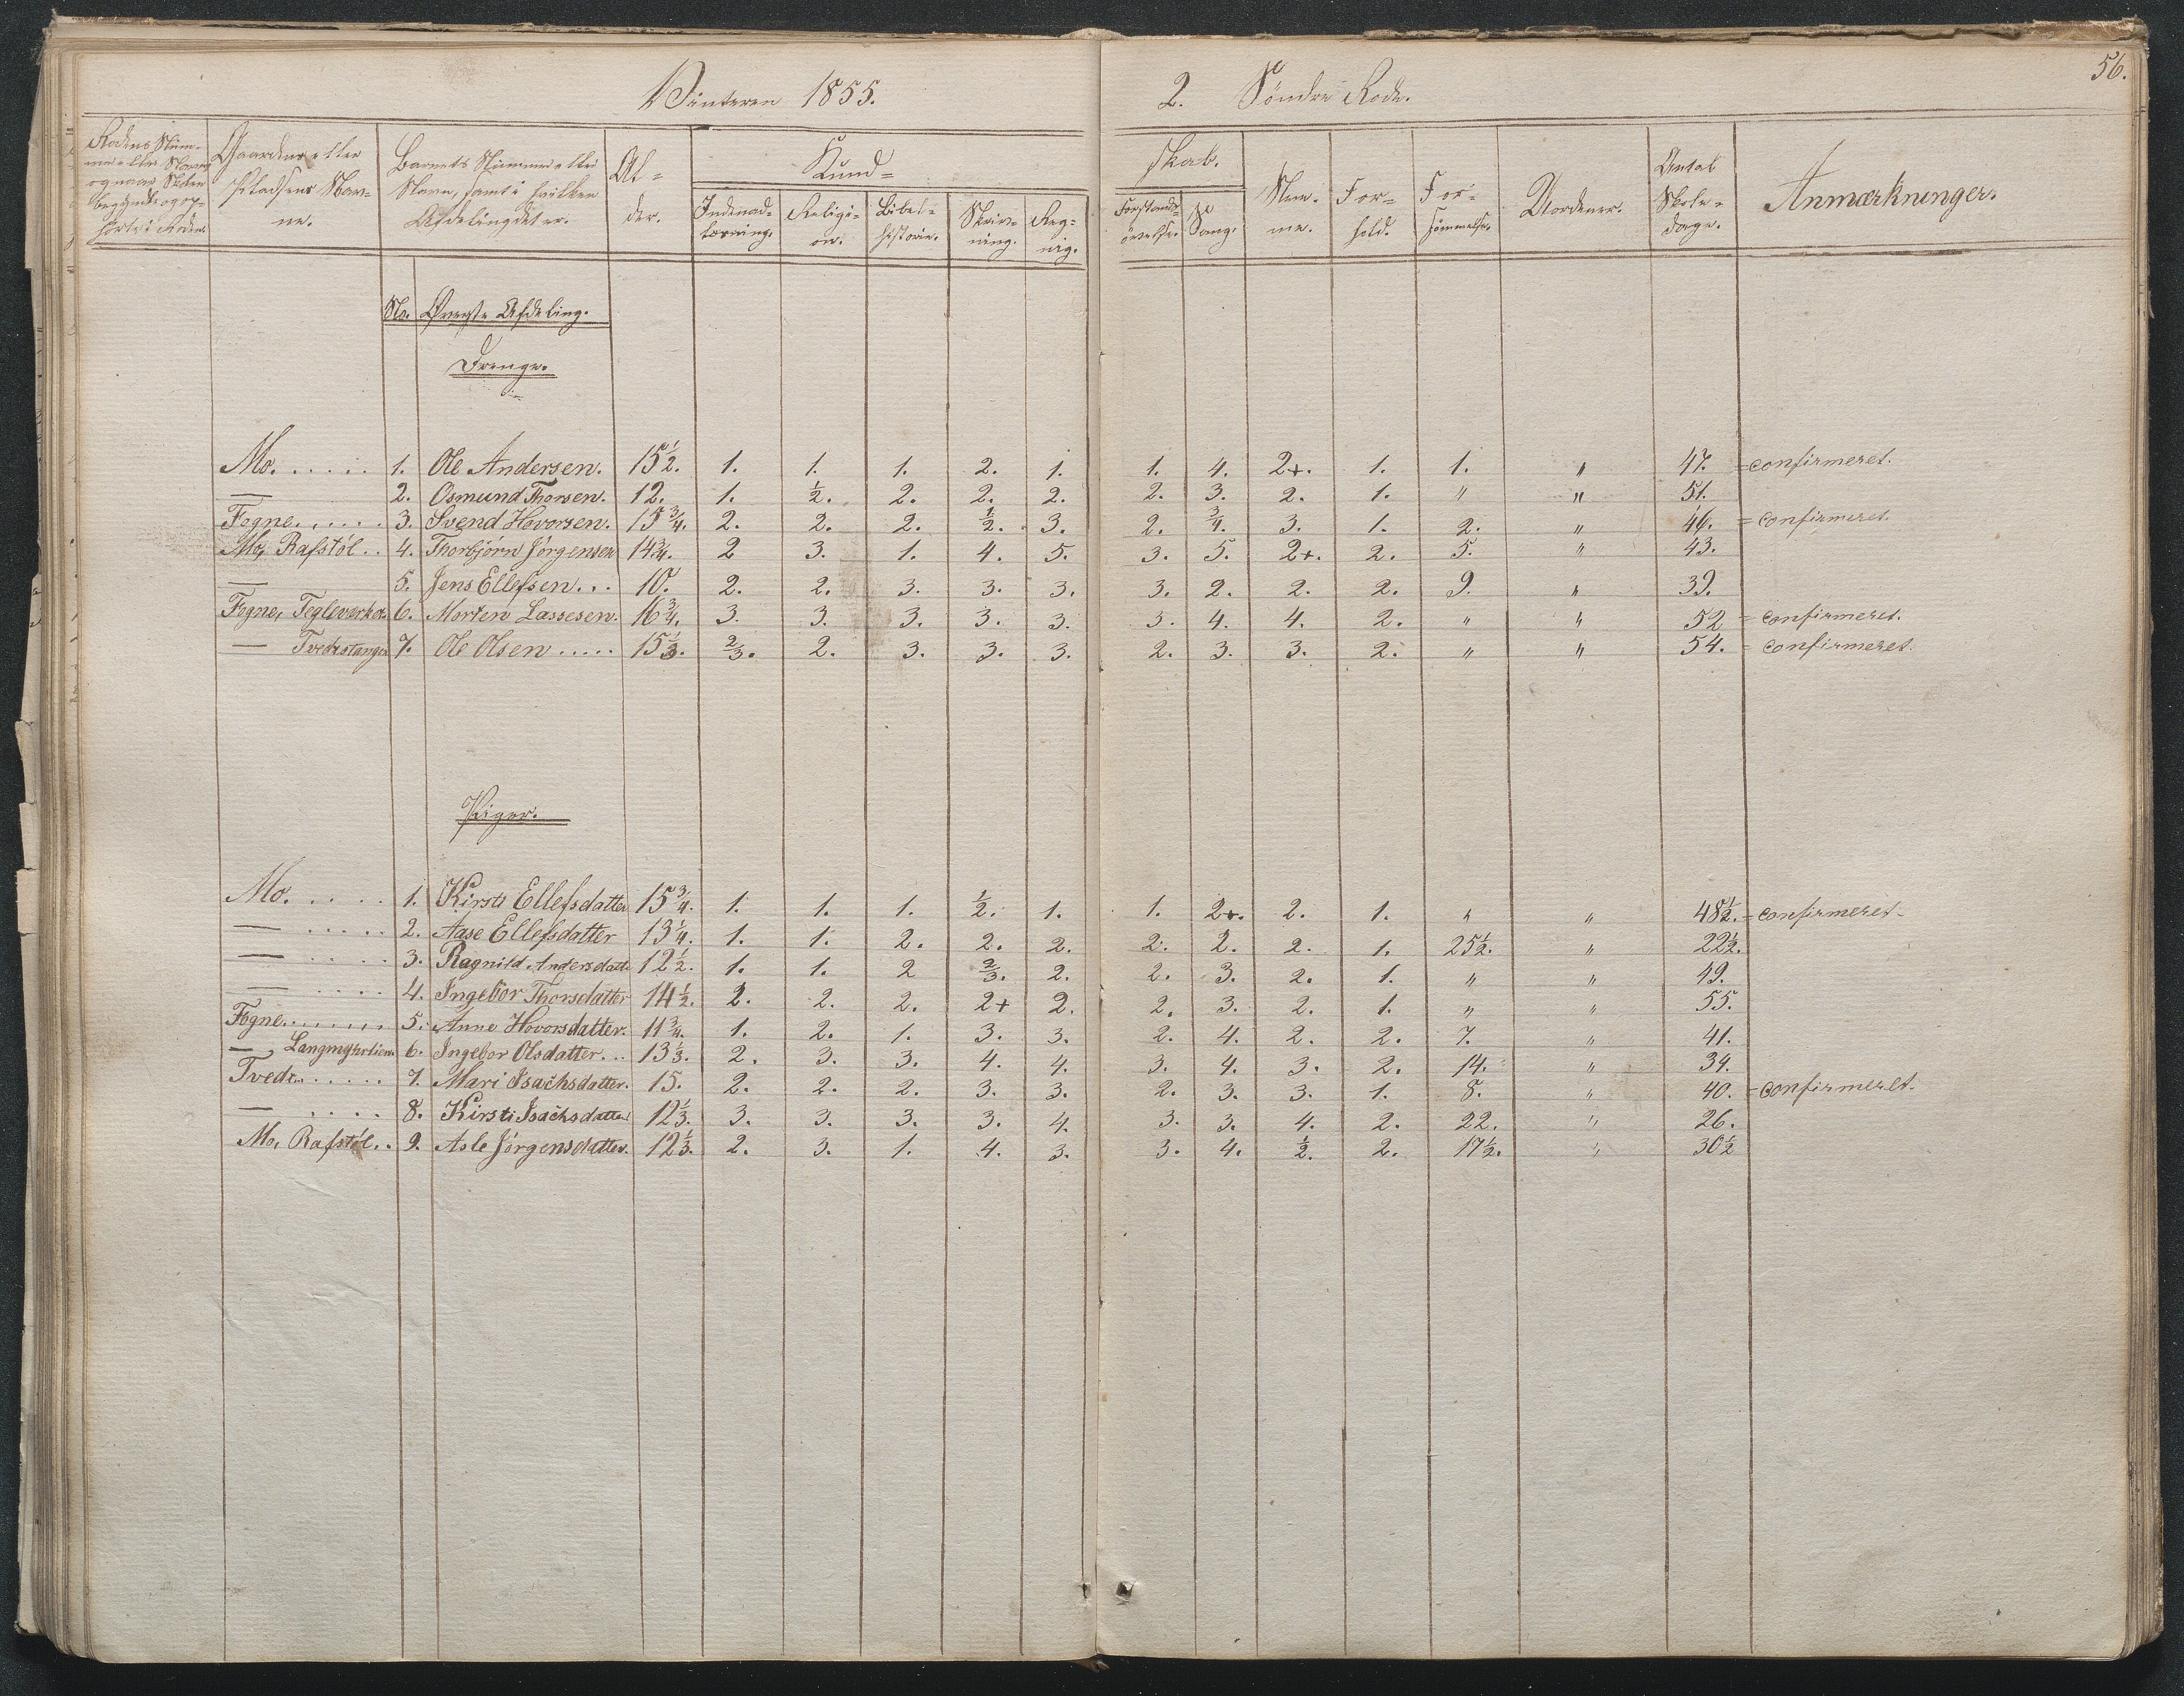 Vinteren 1855.
2. Søndre Rode.
56.
Rodens Num-
mer eller Navn,
og naar Skolen
begyndte og op-
hørte i Roden.
Gaardens eller
Pladsens Nav-
ne.
Barnets Nummer eller
Navn, samt i hvilken
Afdeling det er.
Al-
der.
Kund-
skab.
Indenad-
læsning.
Religi-
on.
Bibel-
historie.
Skriv-
ning.
Reg-
ning.
Forstands-
øvelse.
Sang.
Nem-
me.
For-
hold.
For-
sømmelse.
Uordener.
Antal
Skole-
dage.
Anmærkninger.
No. Øverste Afdeling.
Drenge.
Mo. ..... 1. Ole Andersen. 15 1/2. 1. 1. 1. 2. 1. 1. 4. 2+. 1. 1. " 47. = confirmeret.
— 2. Osmund Thorsen. 12. 1. 1/2. 2. 2. 2. 2. 3. 2. 1. " " 51.
Fogne..... 3. Svend Hovorsen. 15 3/4. 2. 2. 2. 1/2. 3. 2. 3/4. 3. 1. 2. " 46. = confirmeret.
Mo, Rafstöl.. 4. Thorbjörn Jörgensen 14 3/4. 2 3. 1. 4. 5. 3. 5. 2+. 2. 5. " 43.
— 5. Jens Ellefsen... 10. 2. 2. 3. 3. 3. 3. 2. 2. 2. 9. " 39.
Fogne, Tegleverket. 6. Morten Lassesen. 16 3/4. 3. 3. 3. 3. 3. 3. 4. 4. 2. " " 52 = confirmeret.
— Tvedestangen 7. Ole Olsen ..... 15 1/3. 2/3. 2. 3. 3. 3. 2. 3. 3. 2. " " 54. = confirmeret.
Piger.
Mo. .... 1. Kirsti Ellefsdatter 15 3/4. 1. 1. 1. 1/2. 1. 1. 2+. 2. 1. " " 48 1/2. = confirmeret.
— ..... 2. Aase Ellefsdatter 13 1/4. 1. 1. 2. 2. 2. 2. 2. 2. 1. 25 1/2. " 22 1/2.
— .... 3. Ragnild Andersdatt. 12 1/2. 1. 1. 2 2/3. 2. 2. 3. 2. 1. " " 49.
— .... 4. Ingebor Thorsdatter 14 1/2. 2. 2. 2. 2+ 2. 2. 3. 2. 1. " " 55.
Fogne....... 5. Anne Hovorsdatter. 11 3/4. 1. 2. 1. 3. 3. 2. 4. 2. 2. 7. " 41.
— Langmyhrlien. 6. Ingebor Olsdatter... 13 1/3. 2. 3. 3. 4. 4. 3. 4. 3. 2. 14. " 34.
Tvede...... 7. Mari Isachsdatter. 15. 2. 2. 2. 3. 3. 2. 3. 3. 1. 8. " 40. = confirmeret.
— .... 8. Kirsti Isachsdatter 12 1/3. 3. 3. 3. 3. 4. 3. 3. 4. 2. 22. " 26.
Mo, Rafstöl.. 9. Asle Jörgensdatter. 12 1/3. 2. 3. 1. 4. 3. 3. 4. 1/2. 2. 17 1/2. " 30 1/2